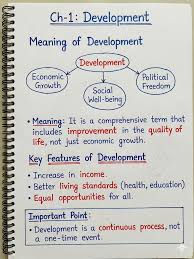 Ch-1: Development
Meaning of Development
Development
Economic Growth
Social Well-being
Political Freedom
• Meaning: It is a comprehensive term that
includes improvement in the quality of
life, not just economic growth.
Key Features of Development
• Increase in income.
• Better living standards (health, education)
• Equal opportunities for all.
Important Point:
• Development is a continuous process, not
a one-time event.